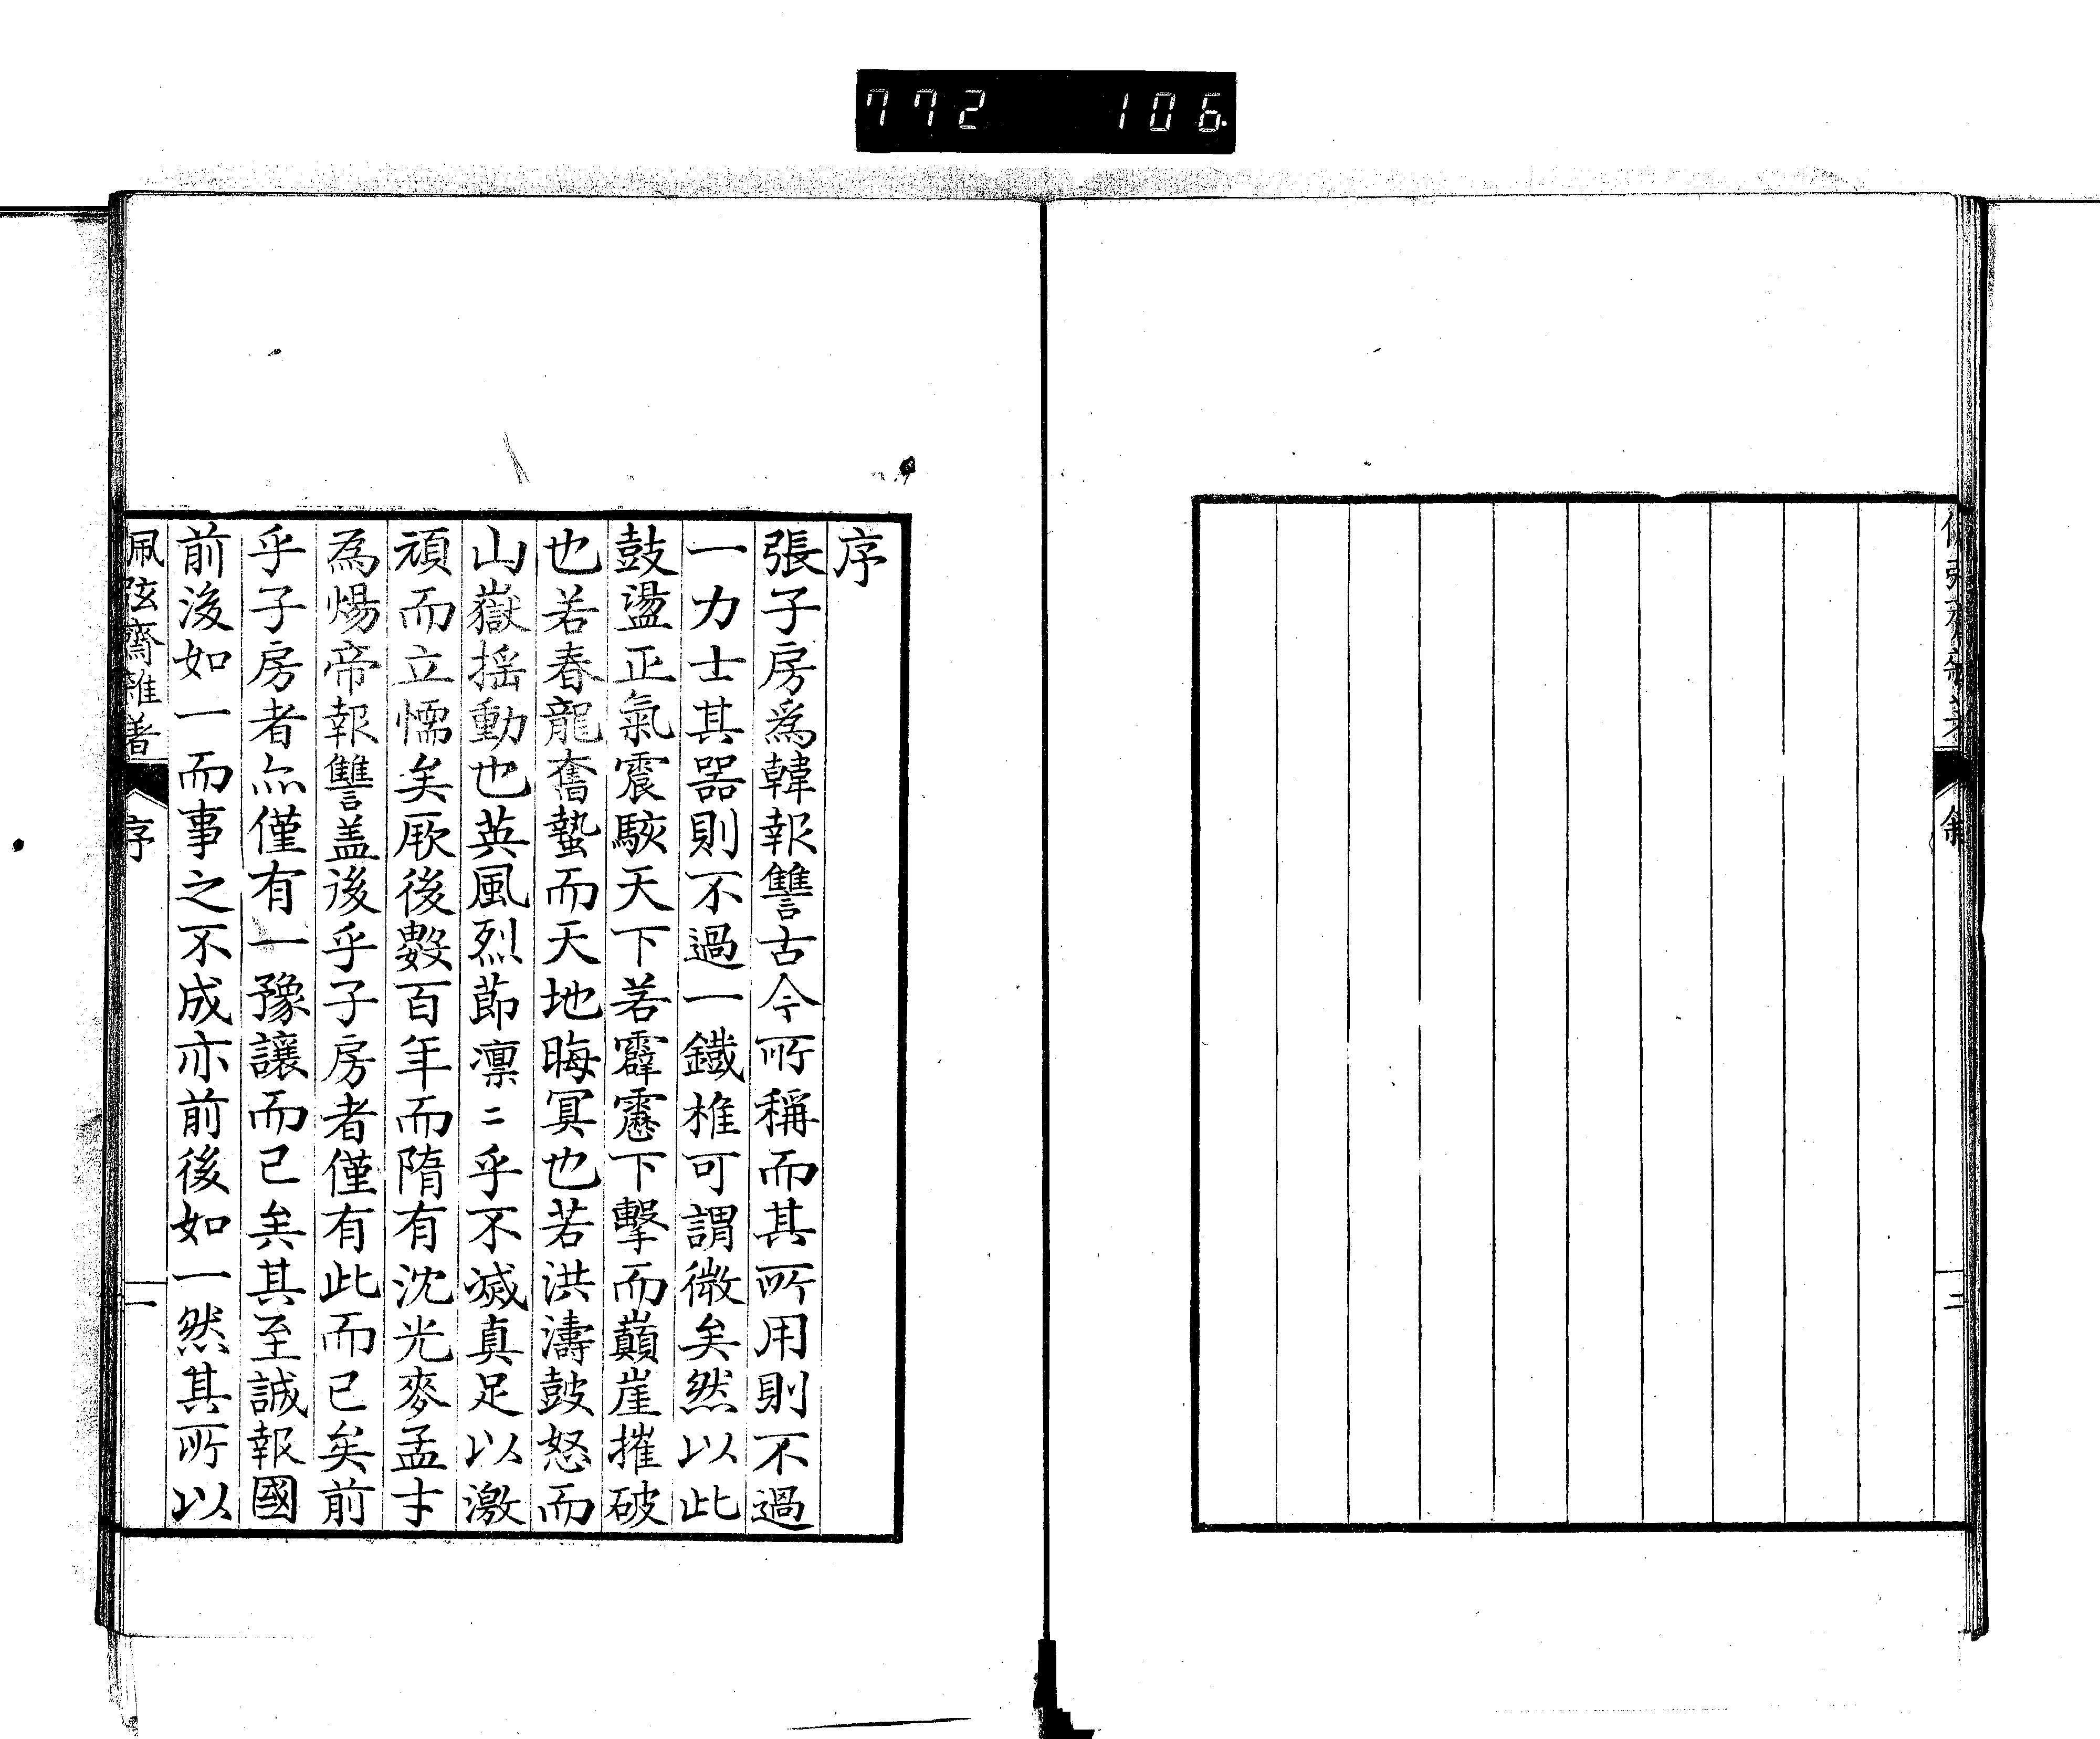 772 106
序
張子房爲韓報讐古今所稱而其所用則不過
一力士其器則不過一鐵椎可謂微矣然以此
鼓盪正氣震駭天下若霹靂下擊而巔崖摧破
也若春龍奮蟄而天地晦冥也若洪濤鼓怒而
山嶽揺動也英風烈節凛〻乎不滅真足以激
頑而立懦矣厥後數百年而隋有沈光麥孟才
為煬帝報讐盖後乎子房者僅有此而已矣前
乎子房者亦僅有一豫讓而已矣其至誠報國
前後如一而事之不成亦前後如一然其所以
佩弦齋雜著 序 一